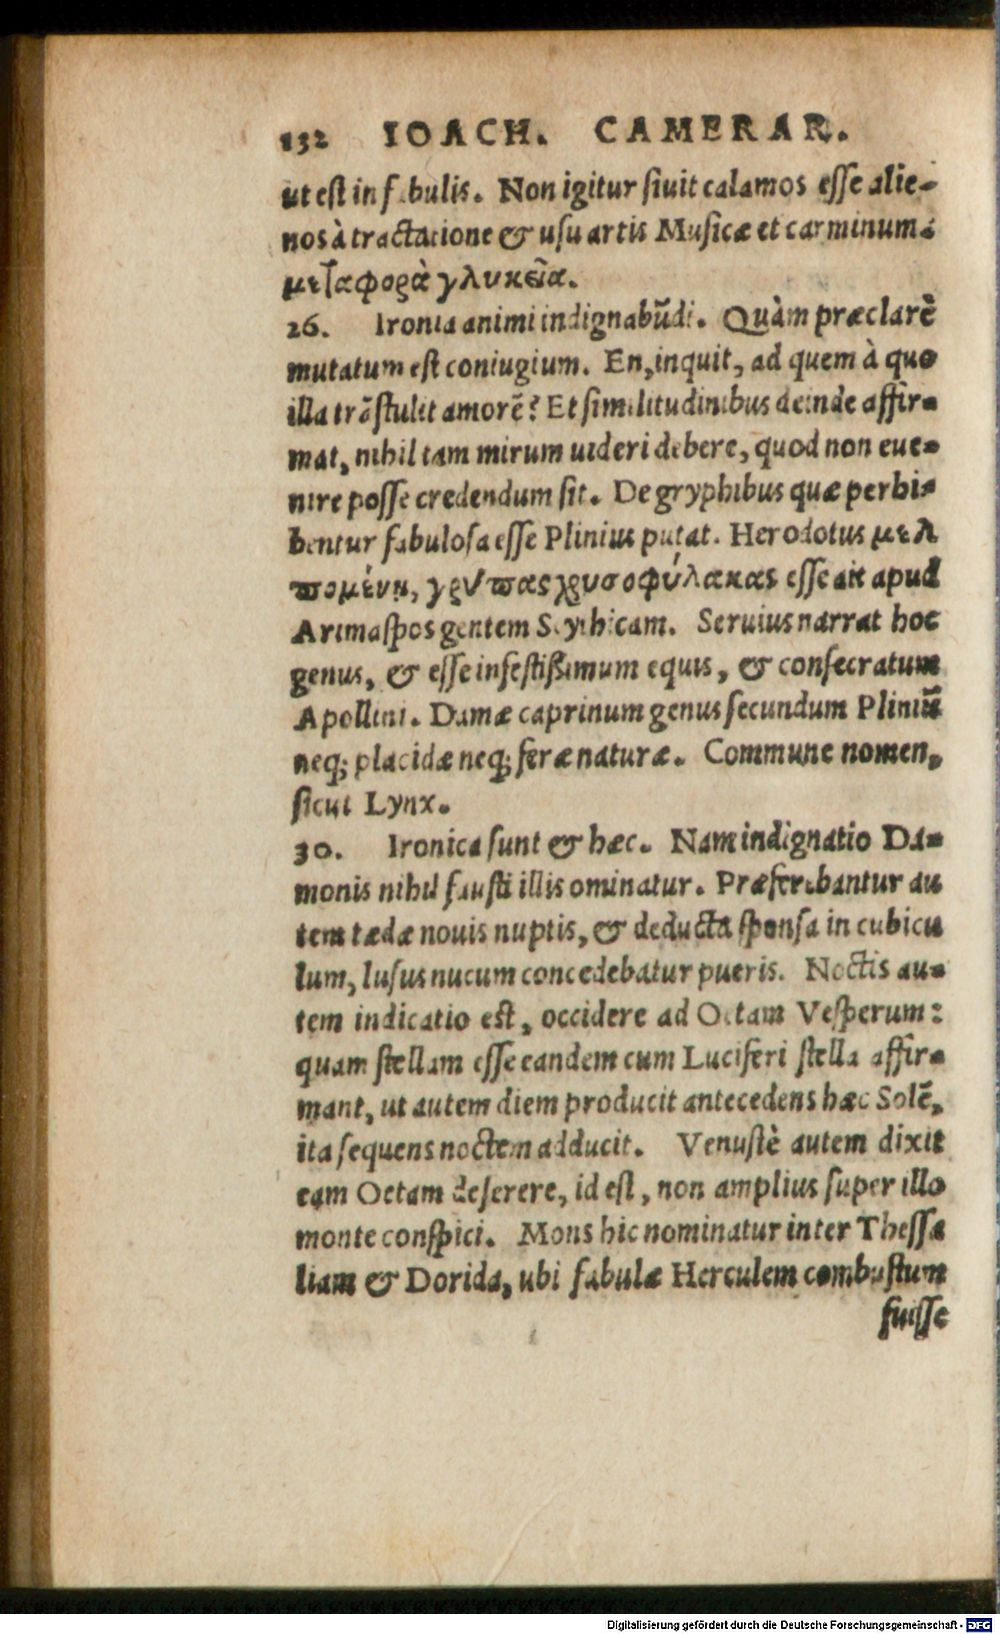 132 IOACH. CAMERAR.
ut est in fabulis. Non igitur sivit calamos esse alie-
nos à tractatione & usu artis Musicæ et carminum:
μεταφορὰ γλυκεῖα.
26. Ironia animi indignabũdi. Quàm præclarè
mutatum est coniugium. En, inquit, ad quem à quo
illa trãstulit amorẽ? Et similitudinibus deinde affir-
mat, nihil tam mirum uideri debere, quod non eue-
nire posse credendum sit. De gryphibus quæ perhi-
bentur fabulosa esse Plinius putat. Herodotus μελ
πομένῃ, γρύπας χρυσοφύλακας esse ait apud
Arimaspos gentem Scythicam. Seruius narrat hoc
genus, & esse infestissimum equis, & consecratum
Apollini. Damæ caprinum genus secundum Pliniũ
neq; placidæ neq; feræ naturæ. Commune nomen,
sicut Lynx.
30. Ironica sunt & hæc. Nam indignatio Da-
monis nihil fausti illis ominatur. Præferebantur au
tem tædæ nouis nuptis, & deducta sponsa in cubicu
lum, lusus nucum concedebatur pueris. Noctis au-
tem indicatio est, occidere ad Oetam Vesperum:
quam stellam esse eandem cum Luciferi stella affir-
mant, ut autem diem producit antecedens hæc Solẽ,
ita sequens noctem adducit. Venustè autem dixit
eam Oetam deserere, id est, non amplius super illo
monte conspici. Mons hic nominatur inter Thessa
liam & Dorida, ubi fabulæ Herculem combustum
fuisse
Digitalisierung gefördert durch die Deutsche Forschungsgemeinschaft - DFG